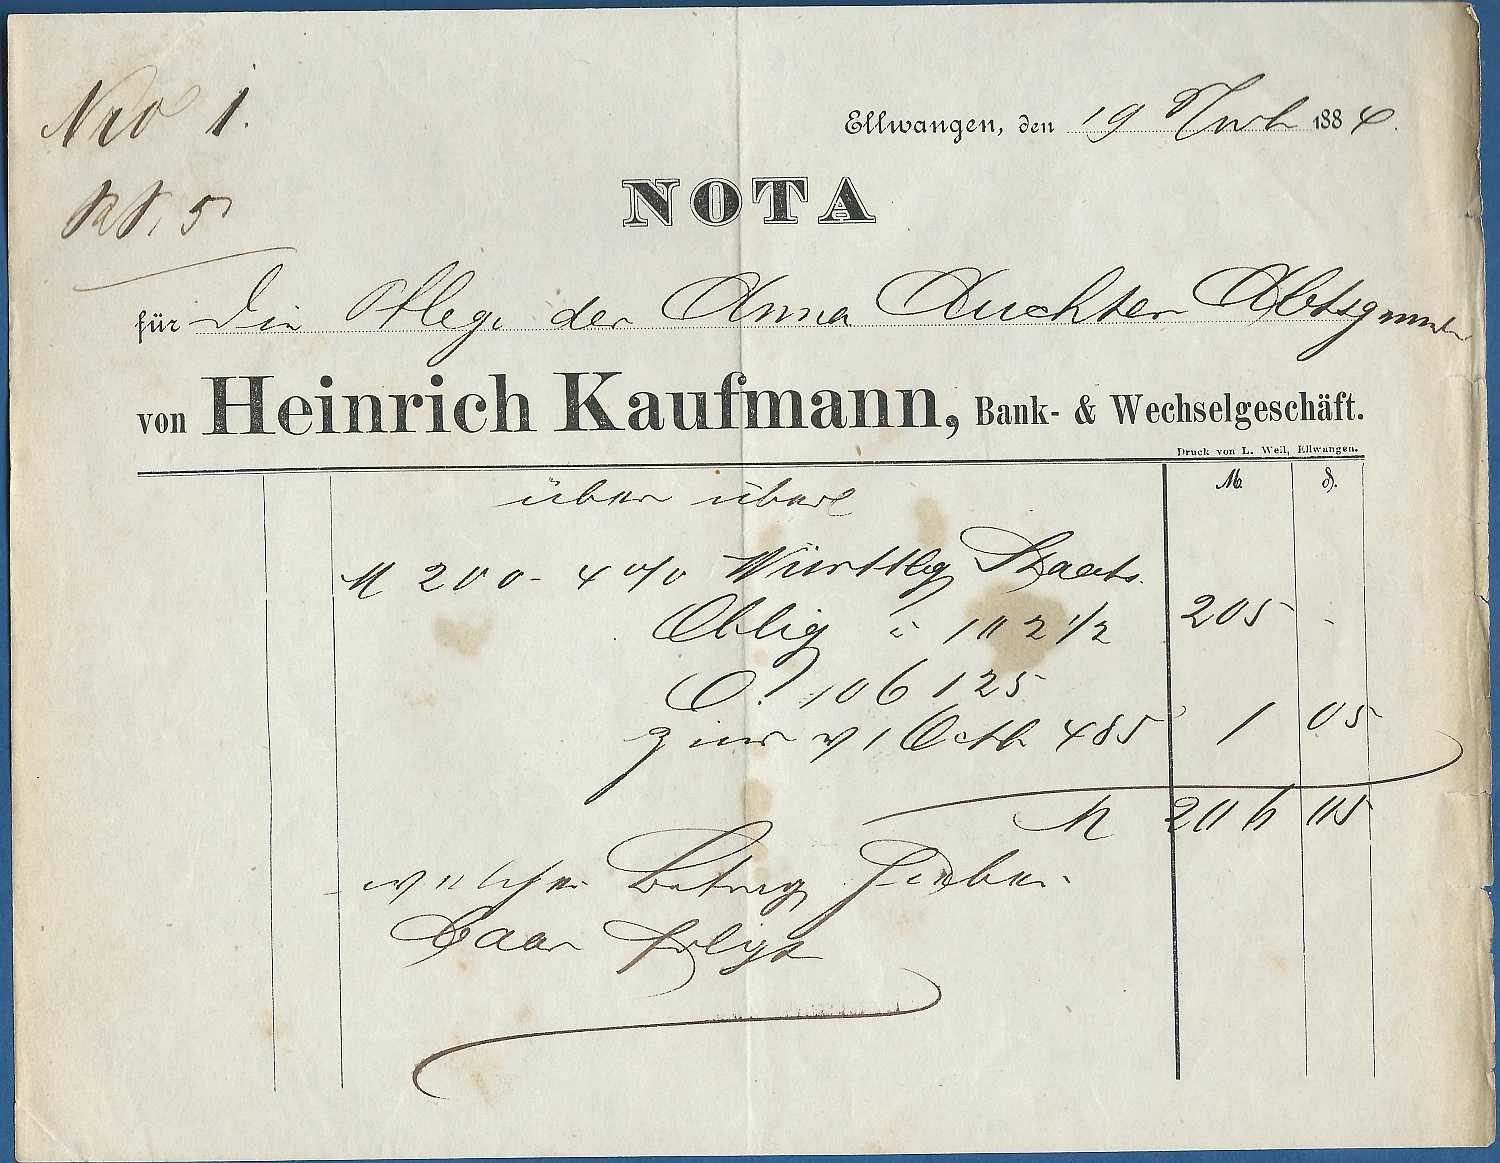 Nro 1.
Ellwangen, den 19 Novb 1884.
NOTA
für Die Pflege der Anna Auchter Abtsgmünd
von Heinrich Kaufmann, Bank- & Wechselgeschäft.
Druck von L. Weil, Ellwangen.
M. ₰.
über
M 200 - 4 0/0 Württbg Staats.
Oblig à 102 1/2 205 -
O. 106125
Zins v 1 Octb 485 1 05
M 206 05
welcher Betrag hieber
baar folgt